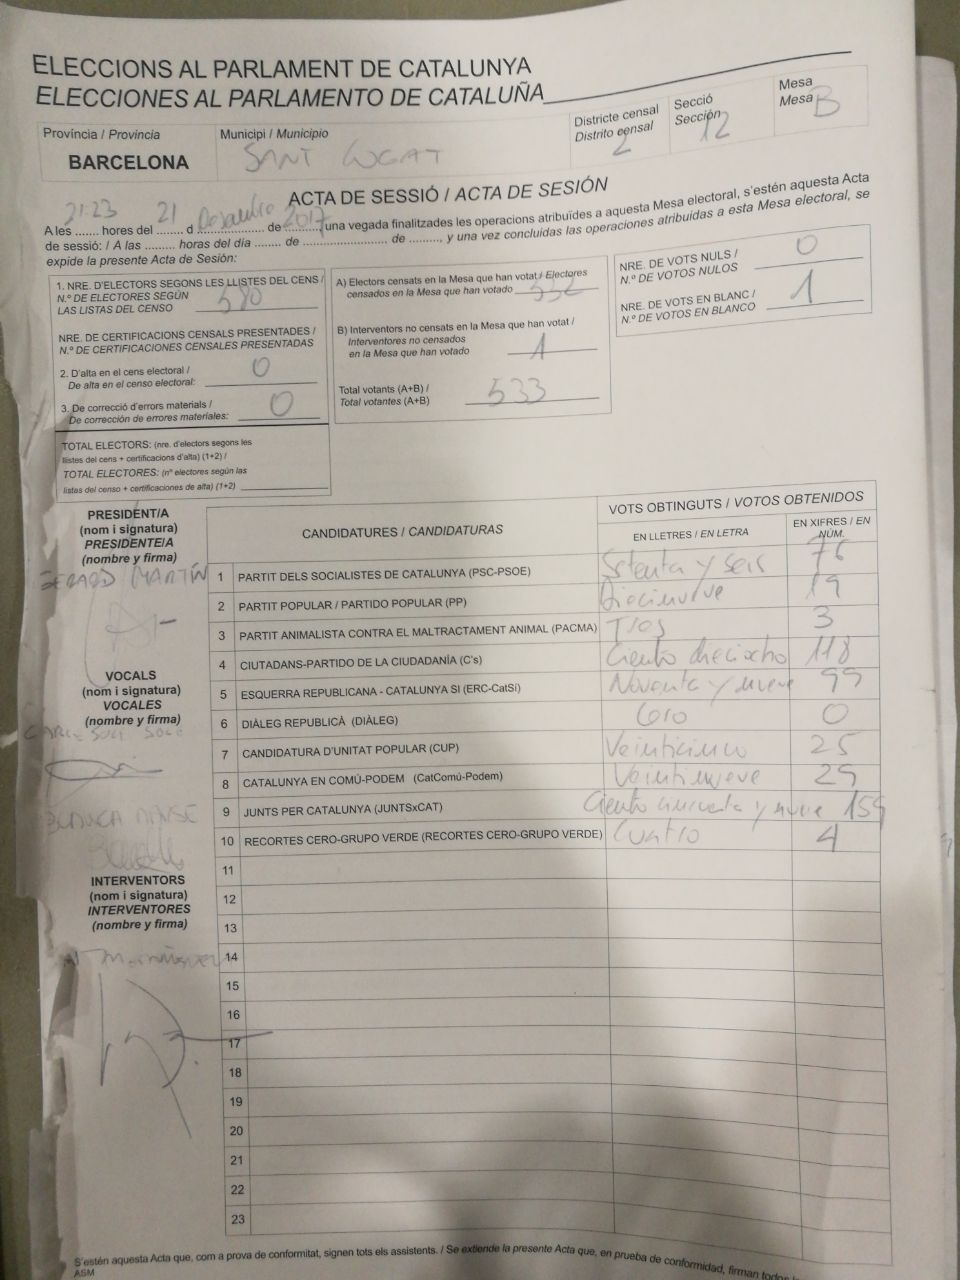 ELECCIONS AL PARLAMENT DE CATALUNYA
ELECCIONES AL PARLAMENTO DE CATALUÑA
Província / Provincia
BARCELONA
Municipi / Municipio
SANT CUGAT
Districte censal
Distrito censal
2
Secció
Sección
12
Mesa
Mesa
B
ACTA DE SESSIÓ / ACTA DE SESIÓN
21:23 21 2017
A les ....... hores del ........ d .................... de .........., una vegada finalitzades les operacions atribuïdes a aquesta Mesa electoral, s'estén aquesta Acta
de sessió: / A las ......... horas del día ........ de ......................... de ........., y una vez concluidas las operaciones atribuidas a esta Mesa electoral, se
expide la presente Acta de Sesión:
1. NRE. D'ELECTORS SEGONS LES LLISTES DEL CENS /
N.º DE ELECTORES SEGÚN
LAS LISTAS DEL CENSO 580
NRE. DE CERTIFICACIONS CENSALS PRESENTADES /
N.º DE CERTIFICACIONES CENSALES PRESENTADAS
2. D'alta en el cens electoral /
De alta en el censo electoral: 0
3. De correcció d'errors materials /
De corrección de errores materiales: 0
TOTAL ELECTORS: (nre. d'electors segons les
llistes del cens + certificacions d'alta) (1+2) /
TOTAL ELECTORES: (nº electores según las
listas del censo + certificaciones de alta) (1+2)
A) Electors censats en la Mesa que han votat / Electores
censados en la Mesa que han votado 532
B) Interventors no censats en la Mesa que han votat /
Interventores no censados
en la Mesa que han votado 1
Total votants (A+B) /
Total votantes (A+B) 533
NRE. DE VOTS NULS /
N.º DE VOTOS NULOS 0
NRE. DE VOTS EN BLANC /
N.º DE VOTOS EN BLANCO 1
PRESIDENT/A
(nom i signatura)
PRESIDENTE/A
(nombre y firma)
MARTÍN
VOCALS
(nom i signatura)
VOCALES
(nombre y firma)
INTERVENTORS
(nom i signatura)
INTERVENTORES
(nombre y firma)
CANDIDATURES / CANDIDATURAS
VOTS OBTINGUTS / VOTOS OBTENIDOS
EN LLETRES / EN LETRA
EN XIFRES / EN NÚM.
1 PARTIT DELS SOCIALISTES DE CATALUNYA (PSC-PSOE) Setenta y seis 76
2 PARTIT POPULAR / PARTIDO POPULAR (PP) Diecinueve 19
3 PARTIT ANIMALISTA CONTRA EL MALTRACTAMENT ANIMAL (PACMA) Tres 3
4 CIUTADANS-PARTIDO DE LA CIUDADANÍA (C's) Ciento dieciocho 118
5 ESQUERRA REPUBLICANA - CATALUNYA SI (ERC-CatSí) Noventa y nueve 99
6 DIÀLEG REPUBLICÀ (DIÀLEG) Cero 0
7 CANDIDATURA D'UNITAT POPULAR (CUP) Veinticinco 25
8 CATALUNYA EN COMÚ-PODEM (CatComú-Podem) Veintinueve 29
9 JUNTS PER CATALUNYA (JUNTSxCAT) Ciento cincuenta y nueve 159
10 RECORTES CERO-GRUPO VERDE (RECORTES CERO-GRUPO VERDE) Cuatro 4
11
12
13
14
15
16
17
18
19
20
21
22
23
S'estén aquesta Acta que, com a prova de conformitat, signen tots els assistents. / Se extiende la presente Acta que, en prueba de conformidad, firman todos
ASM